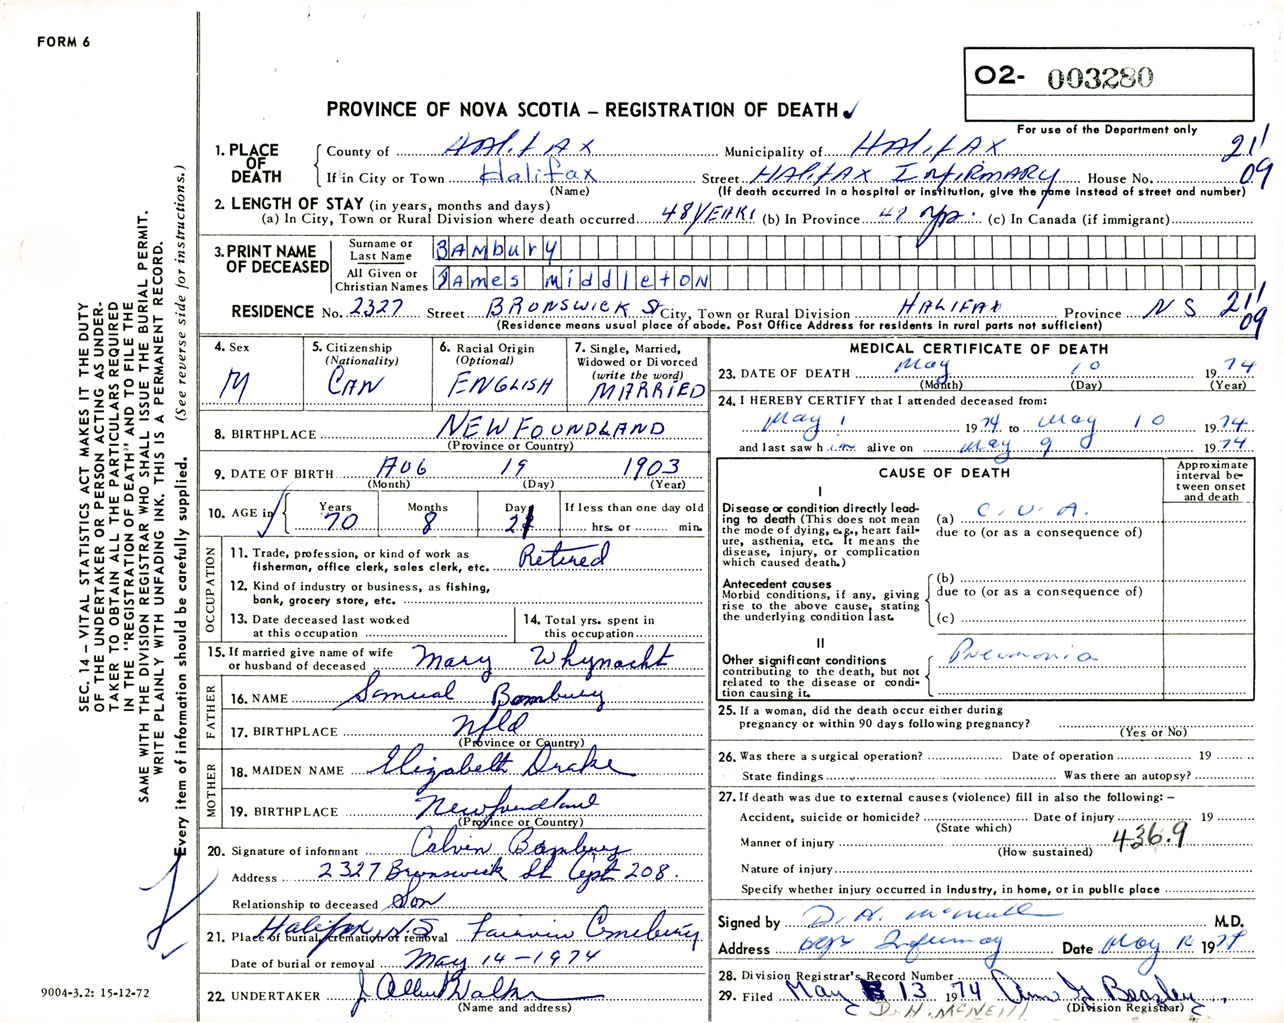 FORM 6
O2- 003280
PROVINCE OF NOVA SCOTIA – REGISTRATION OF DEATH
For use of the Department only
1. PLACE OF DEATH
County of HALIFAX Municipality of HALIFAX 21/09
If in City or Town Halifax Street HALIFAX INFIRMARY House No.
(Name) (If death occurred in a hospital or institution, give the name instead of street and number)
2. LENGTH OF STAY (in years, months and days)
(a) In City, Town or Rural Division where death occurred 48 YEARS (b) In Province 48 yrs. (c) In Canada (if immigrant)
3. PRINT NAME OF DECEASED
Surname or Last Name BAMbury
All Given or Christian Names JAmes MiddleTON
RESIDENCE No. 2327 Street BRUNSWICK St City, Town or Rural Division HALIFAX Province N S 21/09
(Residence means usual place of abode. Post Office Address for residents in rural parts not sufficient)
4. Sex M
5. Citizenship (Nationality) CAN
6. Racial Origin (Optional) ENGLISH
7. Single, Married, Widowed or Divorced (write the word) MARRIED
8. BIRTHPLACE NEWFOUNDLAND
(Province or Country)
9. DATE OF BIRTH AUG 19 1903
(Month) (Day) (Year)
10. AGE in Years 70 Months 8 Days 21 If less than one day old hrs. or min.
OCCUPATION
11. Trade, profession, or kind of work as fisherman, office clerk, sales clerk, etc. Retired
12. Kind of industry or business, as fishing, bank, grocery store, etc.
13. Date deceased last worked at this occupation
14. Total yrs. spent in this occupation
15. If married give name of wife or husband of deceased Mary Whynacht
FATHER
16. NAME Samual Bambury
17. BIRTHPLACE Nfld
(Province or Country)
MOTHER
18. MAIDEN NAME Elizabeth Drake
19. BIRTHPLACE Newfoundland
(Province or Country)
20. Signature of informant Calvin Bambury
Address 2327 Brunswick St Apt 208.
Relationship to deceased Son
21. Place of burial, cremation or removal Halifax N.S Fairview Cemetery
Date of burial or removal May 14 - 1974
22. UNDERTAKER J Albert Walker
(Name and address)
MEDICAL CERTIFICATE OF DEATH
23. DATE OF DEATH May 10 1974
(Month) (Day) (Year)
24. I HEREBY CERTIFY that I attended deceased from:
May 1 1974 to May 10 1974
and last saw him alive on May 9 1974
CAUSE OF DEATH
Approximate interval between onset and death
I
Disease or condition directly leading to death (This does not mean the mode of dying, e.g., heart failure, asthenia, etc. It means the disease, injury, or complication which caused death.)
(a) C. V. A.
due to (or as a consequence of)
Antecedent causes
Morbid conditions, if any, giving rise to the above cause, stating the underlying condition last.
(b)
due to (or as a consequence of)
(c)
II
Other significant conditions contributing to the death, but not related to the disease or condition causing it.
Pneumonia
25. If a woman, did the death occur either during pregnancy or within 90 days following pregnancy?
(Yes or No)
26. Was there a surgical operation? Date of operation 19
State findings Was there an autopsy?
27. If death was due to external causes (violence) fill in also the following: –
Accident, suicide or homicide? Date of injury 19
(State which)
Manner of injury 436.9
(How sustained)
Nature of injury
Specify whether injury occurred in industry, in home, or in public place
Signed by D. H. McNeill M.D.
Address Infirmary Date May 1974
28. Division Registrar's Record Number
29. Filed May 13 1974 Ann G Beazley
D. H. MCNEILL (Division Registrar)
SEC. 14 – VITAL STATISTICS ACT MAKES IT THE DUTY
OF THE UNDERTAKER OR PERSON ACTING AS UNDER-
TAKER TO OBTAIN ALL THE PARTICULARS REQUIRED
IN THE "REGISTRATION OF DEATH" AND TO FILE THE
SAME WITH THE DIVISION REGISTRAR WHO SHALL ISSUE THE BURIAL PERMIT.
WRITE PLAINLY WITH UNFADING INK. THIS IS A PERMANENT RECORD.
Every item of information should be carefully supplied. (See reverse side for instructions.)
9004-3.2: 15-12-72